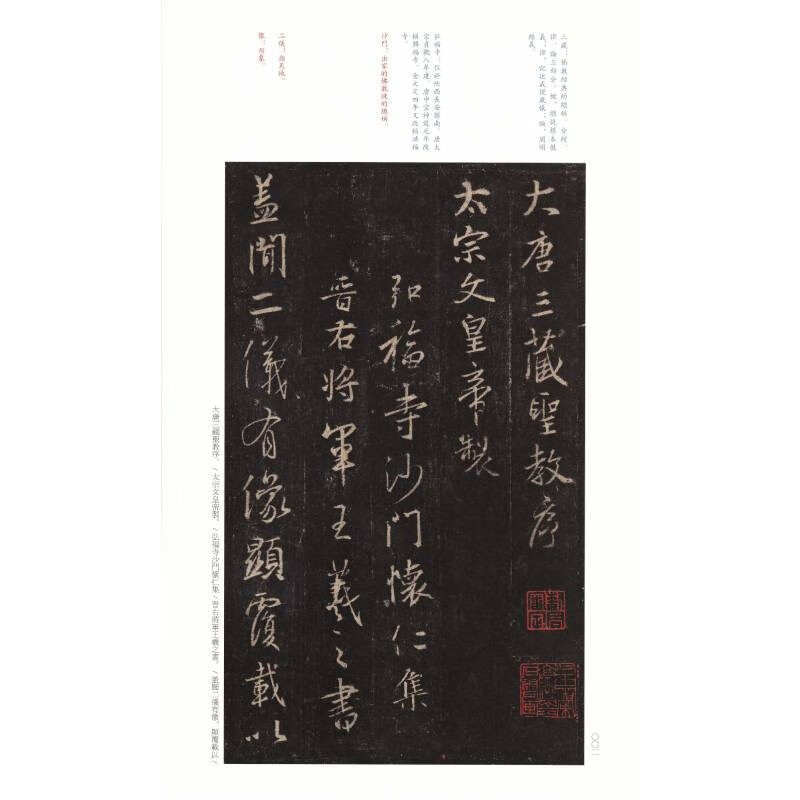 三藏：佛教經典的總稱，分經、
律、論三部分。經，總說根本教
義；律，記述戒規威儀；論，闡明
經義。
弘福寺：位於陝西長安縣南，唐太
宗貞觀八年建，唐中宗神龍元年改
稱興福寺，金大定四年又改稱洪福
寺。
沙門：出家的佛教徒的總稱。
二儀：指天地。
像：形象。
大唐三藏聖教序
太宗文皇帝製
弘福寺沙門懷仁集
晉右將軍王羲之書
蓋聞二儀有像顯覆載以
大唐三藏聖教序。/太宗文皇帝製。/弘福寺沙門懷仁集/晉右將軍王羲之書。/蓋聞二儀有像，顯覆載以/
〇〇二